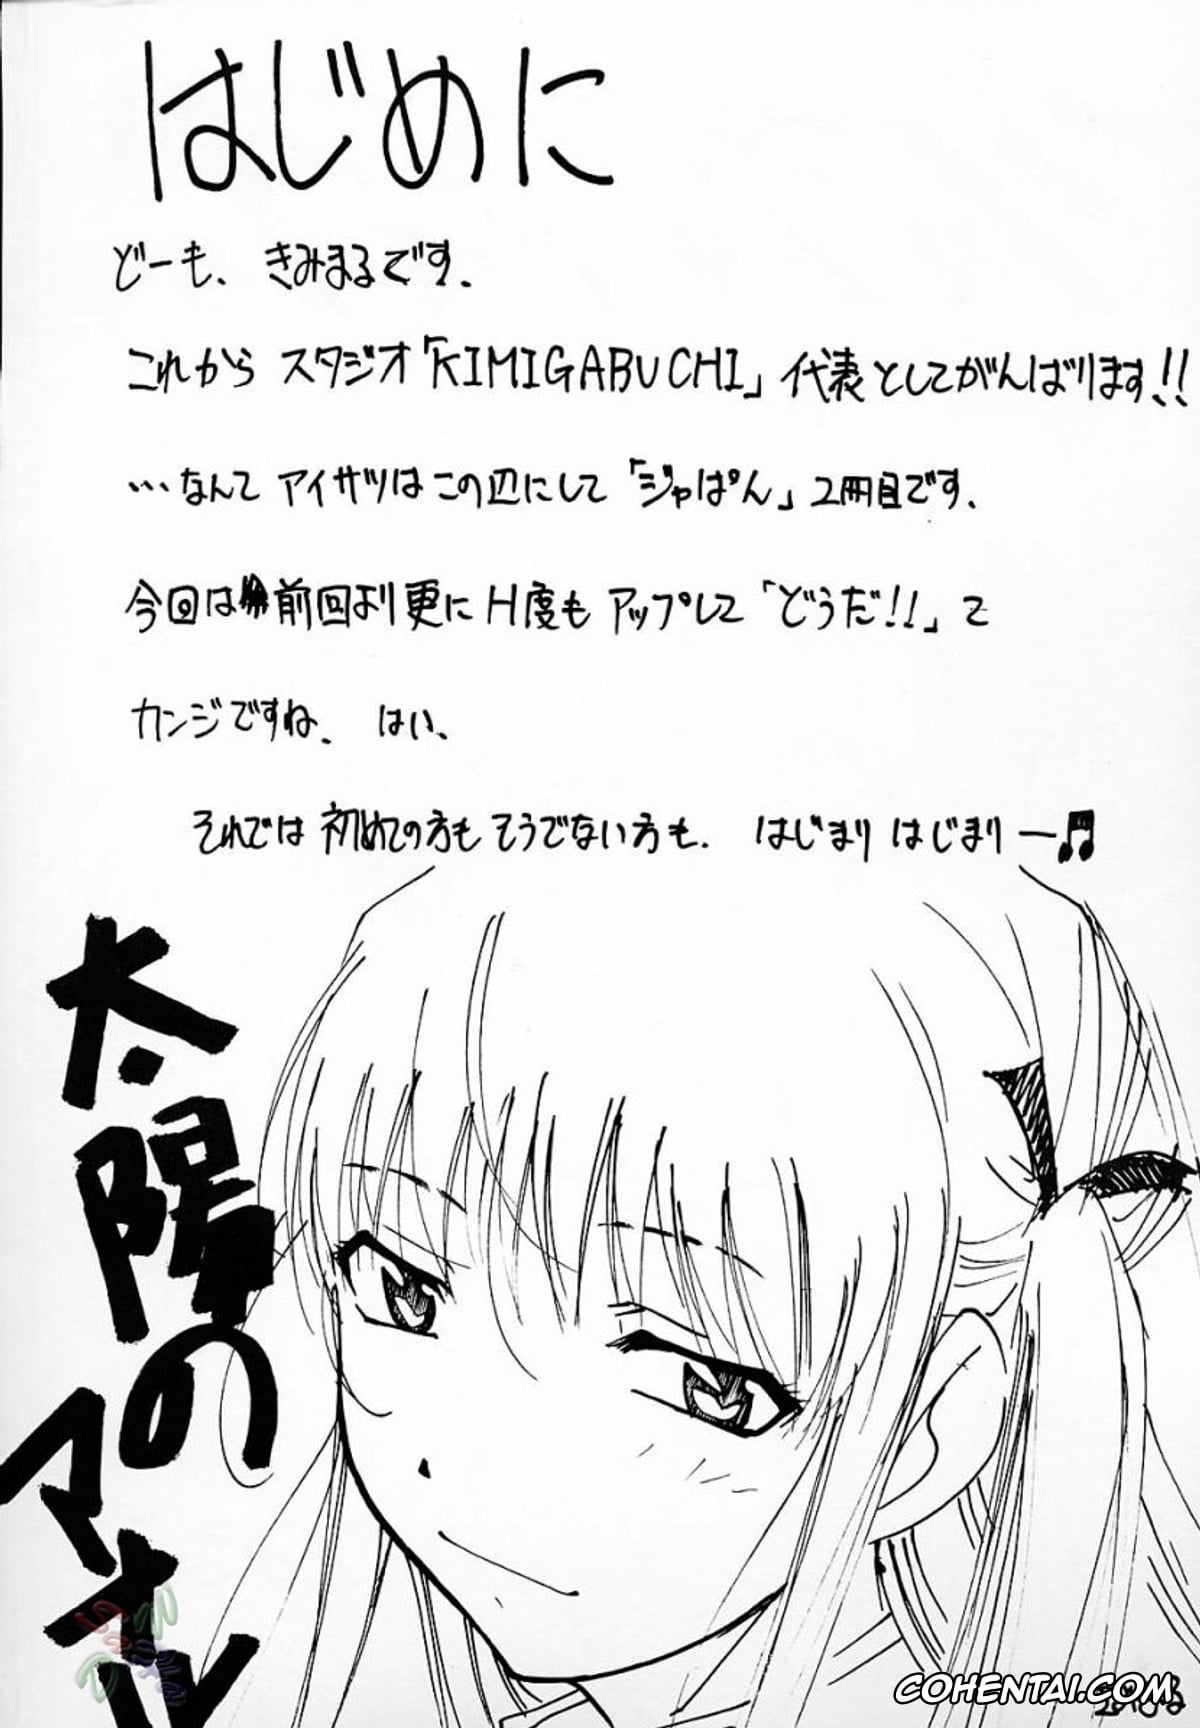 はじめに
どーも、きみまるです.
これから スタジオ「KIMIGABUCHI」代表としてがんばります!!
…なんて アイサツはこの辺にして「ジャぱん」2冊目です.
今回は前回より更に H度も アップして「どうだ!!」て
カンジですね. はい、
それでは 初めての方も そうでない方も. はじまり はじまりー♫
太陽の
マオル
COHENTAI.COM